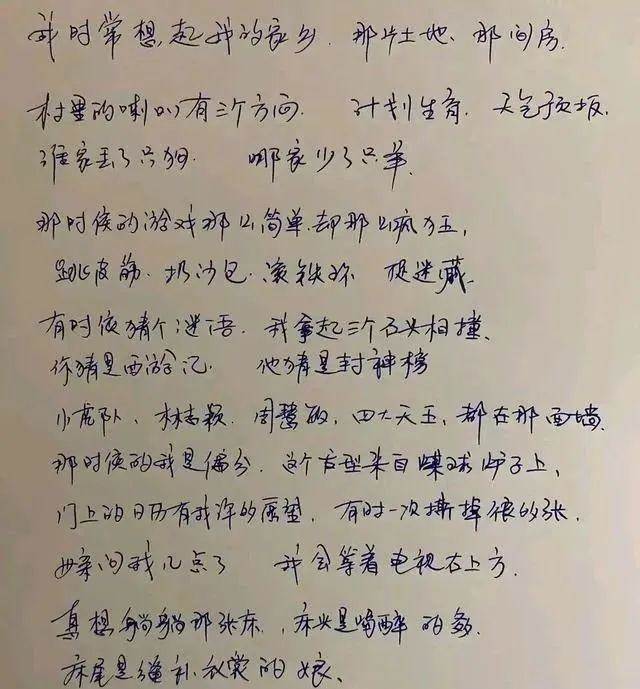 我时常想起我的家乡.那片土地、那间房.
村里的喇叭有三个方向. 计划生育. 天气预报.
谁家丢了只狗. 哪家少了只羊.
那时候的游戏那么简单.却那么疯狂,
跳皮筋.扔沙包.滚铁环 捉迷藏.
有时候猜个谜语.我拿起三个石头相撞.
你猜是西游记. 他猜是封神榜
小虎队.林志颖.周慧敏,四大天王,都在那面墙.
那时候的我是偏分.这个发型来自煤球炉子上,
门上的日历有我许的愿望,有时一次撕掉很多张.
母亲问我几点了 我会等着电视右上方.
真想躺躺那张床.,床头是喝醉的爹.
床尾是缝补衣裳的娘.